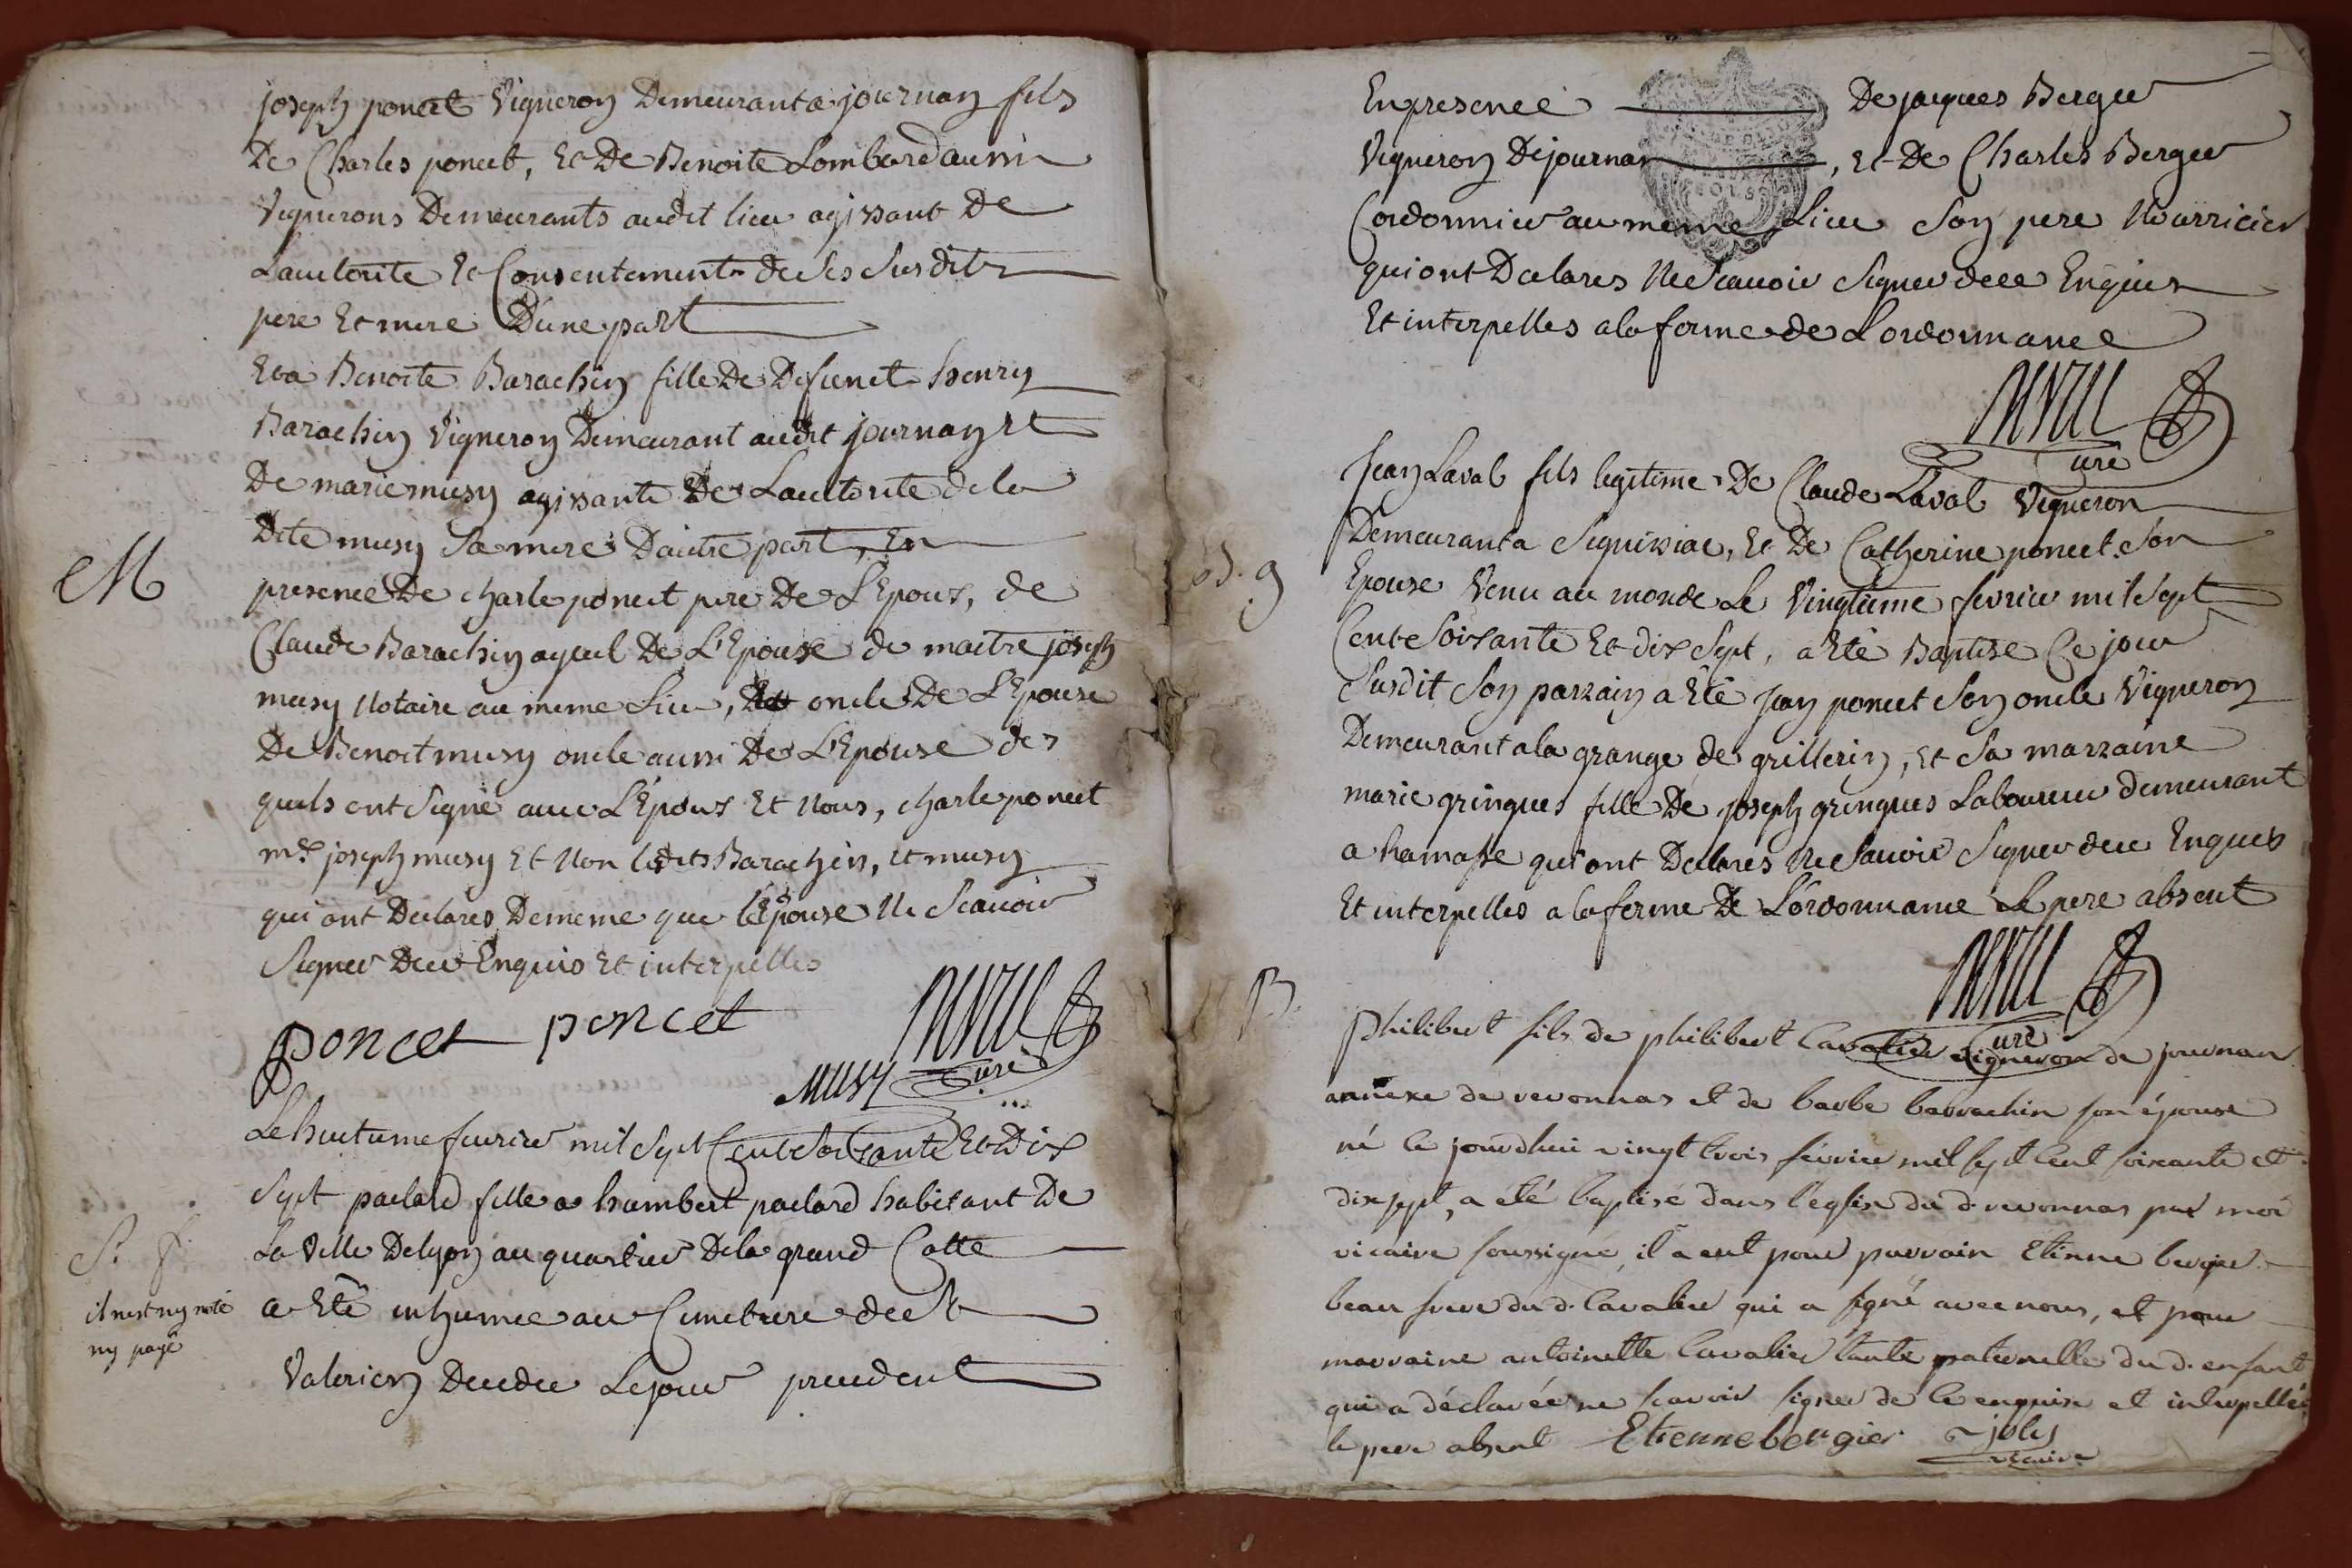 joseph poncet Vigneron Demeurant a journan fils
De Charles poncet, Et De Benoite Lombard aussi
Vignerons Demeurants audit lieu agissant De
Lautorité Et Consentement de ses susdits
pere Et mere D'une part
Et a Benoite Barachin fille De Defunct henry
Barachin Vigneron Demeurant audit journan Et
De marie musy agissante De Lautorité de la
Dite musy Sa mere D'autre part, En
M
presence De charle poncet pere De L'Epoux, de
Claude Barachin ayeul De L'Epouse de maitre joseph
musy Notaire au meme Lieu, oncle De L'Epouse
De Benoit musy oncle aussi De L'Epouse des
quels ont Signé avec L'Epoux Et Nous, charle poncet
me joseph musy Et Non lesdits Barachin, et musy
qui ont Declarés De meme que l'Epouse Ne Scavoir
Signer De ce Enquis Et interpellés
poncet poncet
musy Curé
Le huitieme fevrier mil Sept Cent Soixante Et Dix
Sept paclard fille a humbert paclard habitant De
S. f.
La Ville De lyon au quartier De la grand Cotte
il nest ny noté
ny payé
a Eté inhumée au Cimetiere de st
Valerien Decedee Le jour precedent
En presence De jacques Berger
Vigneron De journan, Et De Charles Berger
Cordonnier au meme Lieu Son pere Nourricier
qui ont Declarés Ne Scavoir Signer de ce Enquis
Et interpellés a la forme de Lordonnance
Curé
Jean Laval fils legitime De Claude Laval Vigneron
Demeurant a Siquissiac, Et De Catherine poncet Son
B. g
Epouse Venu au monde Le Vingtieme fevrier mil Sept
Cent Soixante Et dix Sept, a Eté Baptisé Ce jour
Susdit Son parrain a Eté Jean poncet Son oncle Vigneron
Demeurant a la grange de grillerin, Et Sa marraine
marie gringues fille De joseph gringues Laboureur demeurant
a hamasse qui ont Declarés Ne Savoir Signer de ce Enquis
Et interpellés a la forme De L'ordonnance Le pere absent
Curé
B.
philibert fils de philibert Cavalier vigneron de journan
annexe de revonnas et de barbe barrachin son épouse
né ce jourdhui vingt trois fevrier mil sept cent soixante et
dix sept, a été baptisé dans l'eglise du d. revonnas par moi
vicaire soussigné, il a eut pour parrain Etienne bergier
beau frere du d. Cavalier qui a signé avec nous, et pour
marraine antoinette Cavalier tante paternelle du d. enfant
qui a déclarée ne scavoir signer de ce enquise et interpellée
le pere absent Etienne bergier joly
vicaire